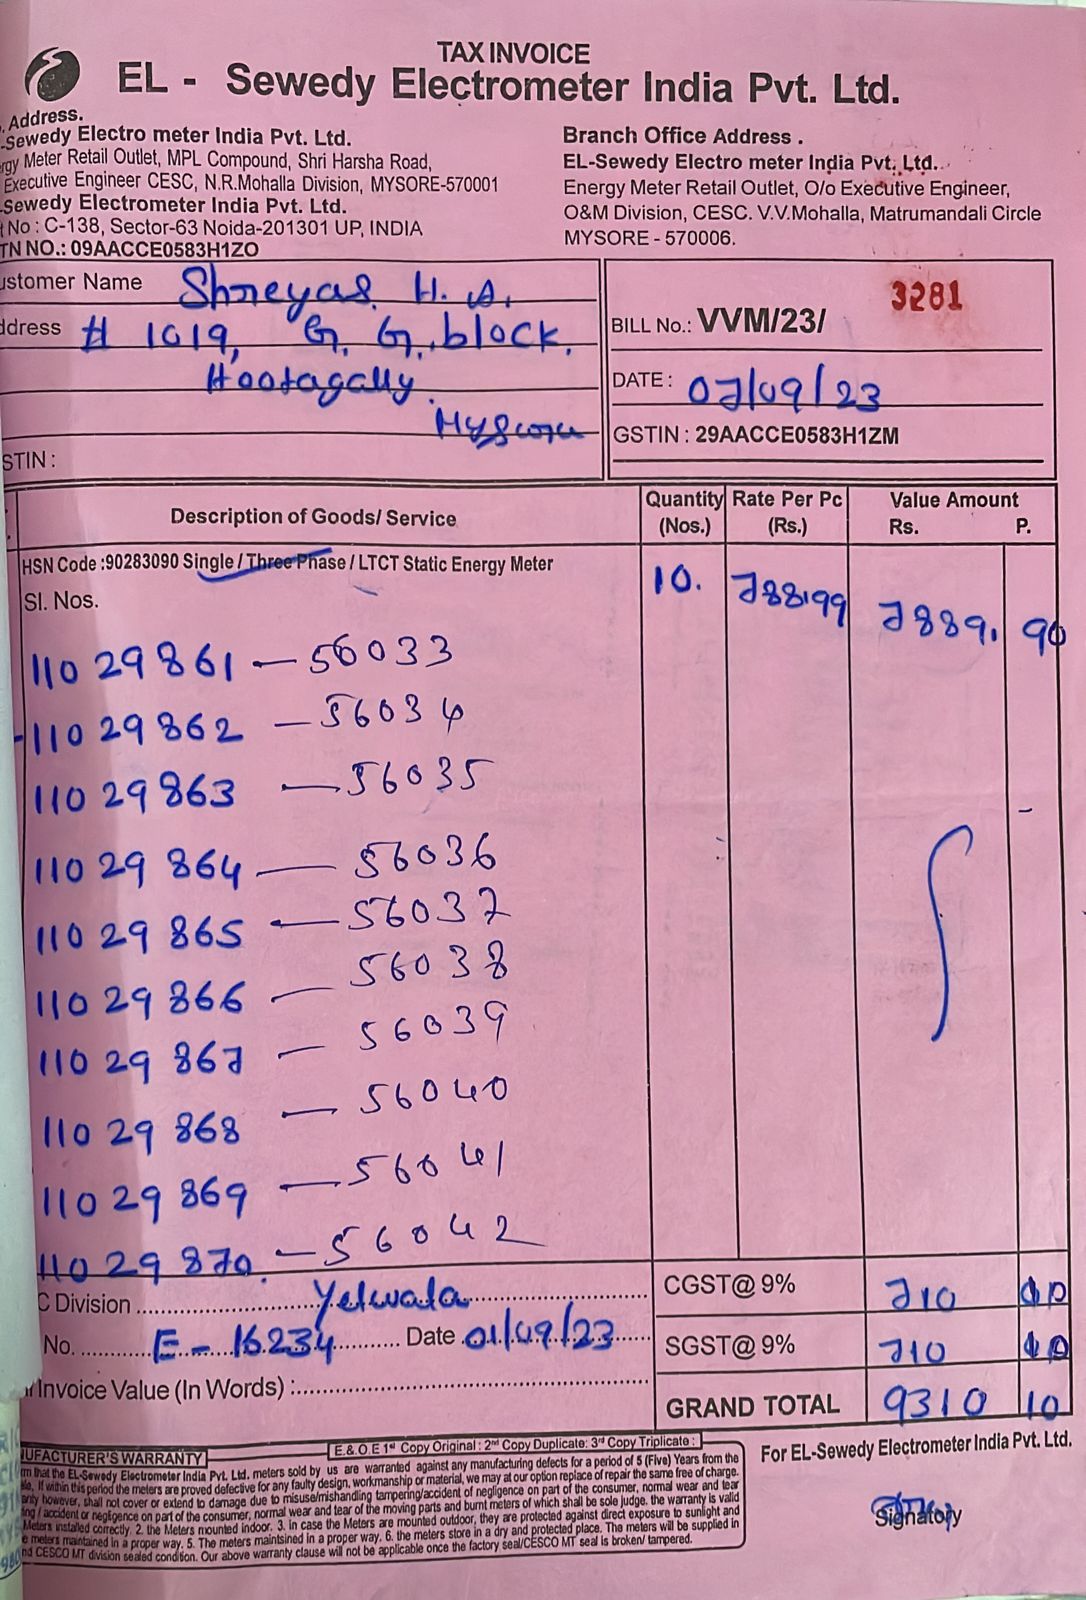 TAX INVOICE
EL - Sewedy Electrometer India Pvt. Ltd.
Address.
-Sewedy Electro meter India Pvt. Ltd.
rgy Meter Retail Outlet, MPL Compound, Shri Harsha Road,
Executive Engineer CESC, N.R.Mohalla Division, MYSORE-570001
Sewedy Electrometer India Pvt. Ltd.
t No : C-138, Sector-63 Noida-201301 UP, INDIA
TN NO.: 09AACCE0583H1ZO
Branch Office Address .
EL-Sewedy Electro meter India Pvt. Ltd.
Energy Meter Retail Outlet, O/o Executive Engineer,
O&M Division, CESC. V.V.Mohalla, Matrumandali Circle
MYSORE - 570006.
ustomer Name Shreyas. H. A.
ddress # 1019, G. G. block,
Hootagally.
Mysore
STIN :
3281
BILL No.: VVM/23/
DATE : 07/09/23
GSTIN : 29AACCE0583H1ZM
Description of Goods/ Service Quantity (Nos.) Rate Per Pc (Rs.) Value Amount Rs. P.
HSN Code :90283090 Single / Three Phase / LTCT Static Energy Meter
Sl. Nos. 10. 788.99 7889. 90
110 29 861 — 56033
110 29 862 — 56034
110 29 863 — 56035
110 29 864 — 56036
110 29 865 — 56037
110 29 866 — 56038
110 29 867 — 56039
110 29 868 — 56040
110 29 869 — 56041
110 29 870. — 56042
C Division Yelwala
No. E - 16234 Date 01/09/23
r Invoice Value (In Words) :
CGST@ 9% 710 10
SGST@ 9% 710 10
GRAND TOTAL 9310 10
E.& O.E 1st Copy Original : 2nd Copy Duplicate: 3rd Copy Triplicate :
UFACTURER'S WARRANTY
rm that the EL-Sewedy Electrometer India Pvt. Ltd. meters sold by us are warranted against any manufacturing defects for a period of 5 (Five) Years from the
le, If within this period the meters are proved defective for any faulty design, workmanship or material, we may at our option replace of repair the same free of charge.
anty however, shall not cover or extend to damage due to misuse/mishandling tampering/accident of negligence on part of the consumer, normal wear and tear
ing / accident or negligence on part of the consumer, normal wear and tear of the moving parts and burnt meters of which shall be sole judge. the warranty is valid
Meters installed correctly. 2. the Meters mounted indoor. 3. in case the Meters are mounted outdoor, they are protected against direct exposure to sunlight and
e meters maintained in a proper way. 5. The meters maintsined in a proper way. 6. the meters store in a dry and protected place. The meters will be supplied in
nd CESCO MT division sealed condition. Our above warranty clause will not be applicable once the factory seal/CESCO MT seal is broken/ tampered.
For EL-Sewedy Electrometer India Pvt. Ltd.
Signatory